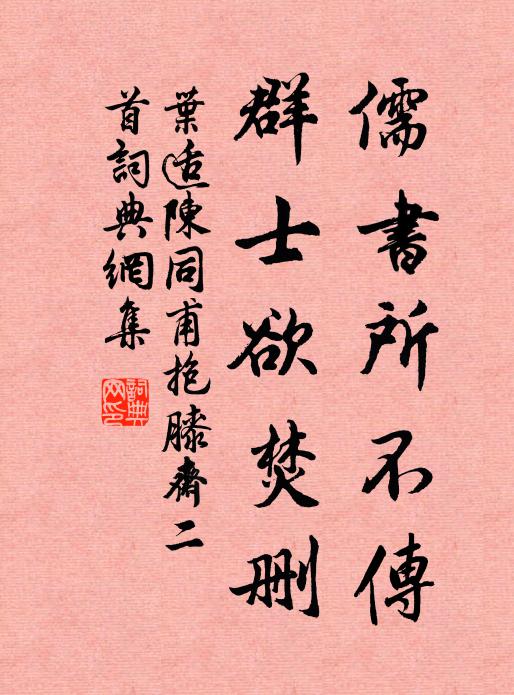 儒書所不傳
群士欲焚刪
葉适陳同甫抱膝齋二
首詞典網集
詞典
网印